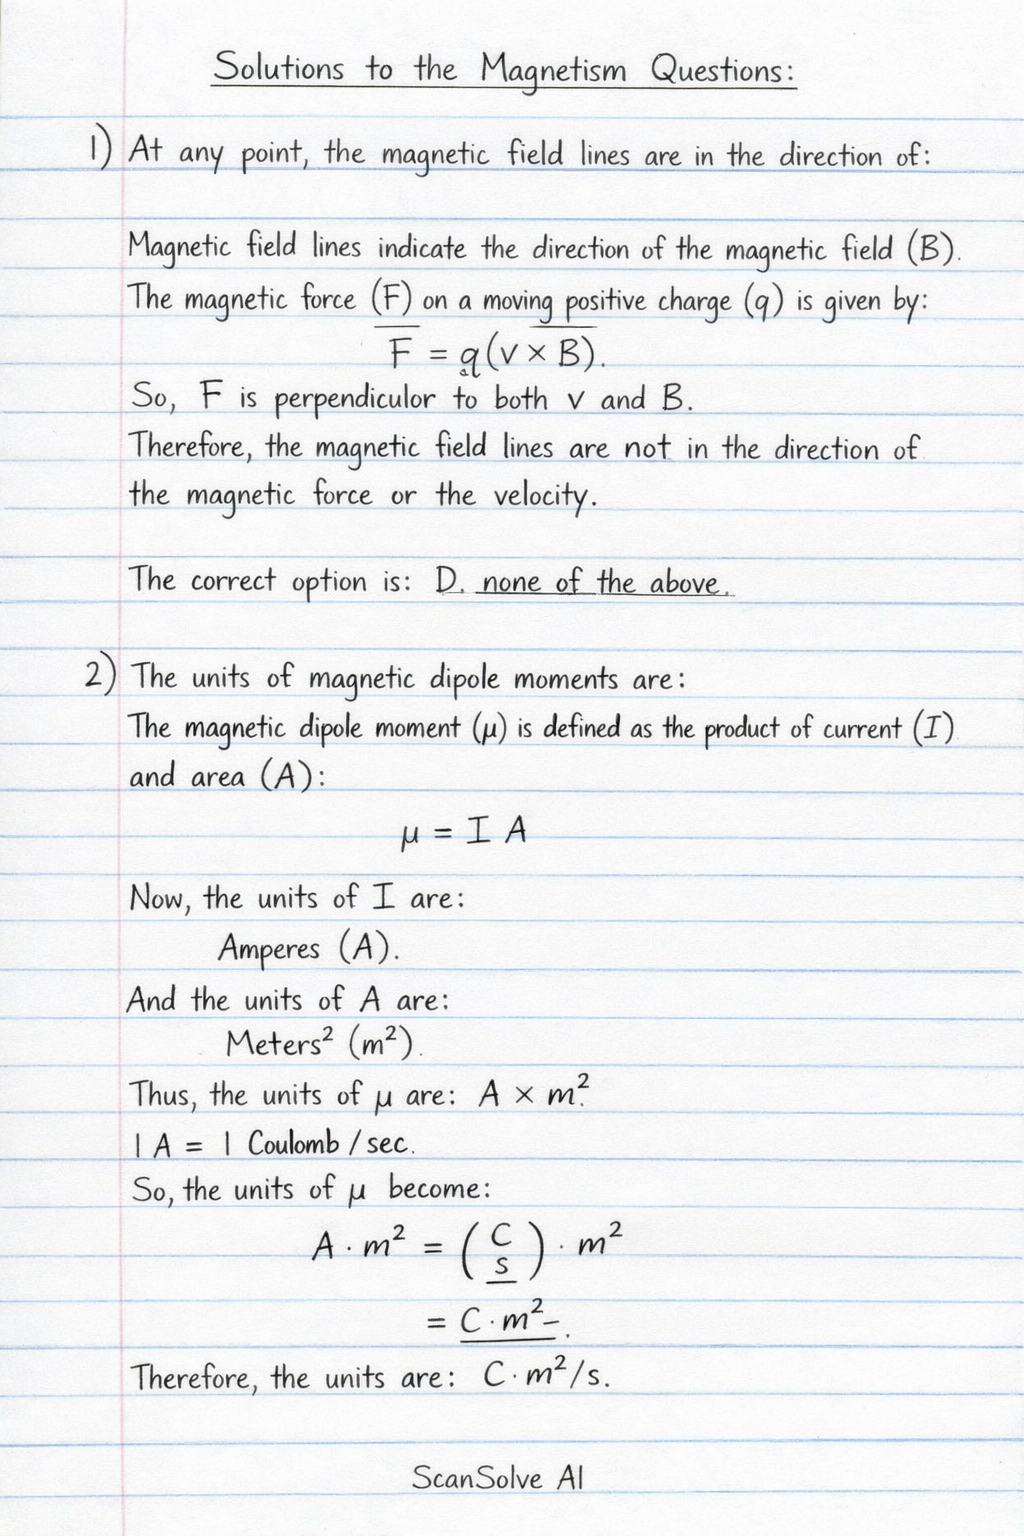 Solutions to the Magnetism Questions:
1) At any point, the magnetic field lines are in the direction of:
Magnetic field lines indicate the direction of the magnetic field (B).
The magnetic force (F) on a moving positive charge (q) is given by:
F = q(v × B).
So, F is perpendiculor to both v and B.
Therefore, the magnetic field lines are not in the direction of
the magnetic force or the velocity.
The correct option is: D. none of the above.
2) The units of magnetic dipole moments are:
The magnetic dipole moment (μ) is defined as the product of current (I)
and area (A):
μ = I A
Now, the units of I are:
Amperes (A).
And the units of A are:
Meters² (m²).
Thus, the units of μ are: A × m².
1 A = 1 Coulomb / sec.
So, the units of μ become:
A · m² = (C/s) · m²
= C · m² –.
Therefore, the units are: C · m²/s.
ScanSolve AI